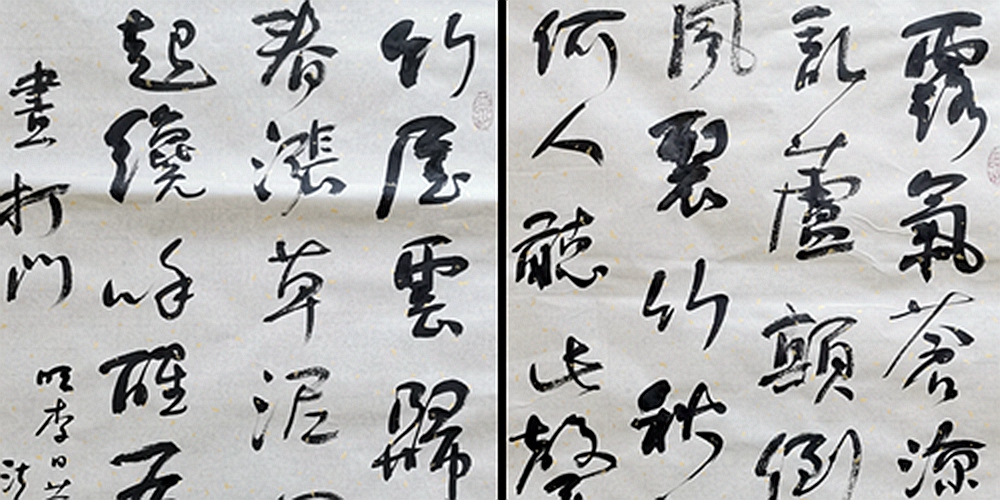 竹屋雲歸
春漲草泥
起繞呼醒
晝打門
明李日
露氣蒼涼
乱蘆顛倒
風裂竹秋
何人聽此聲